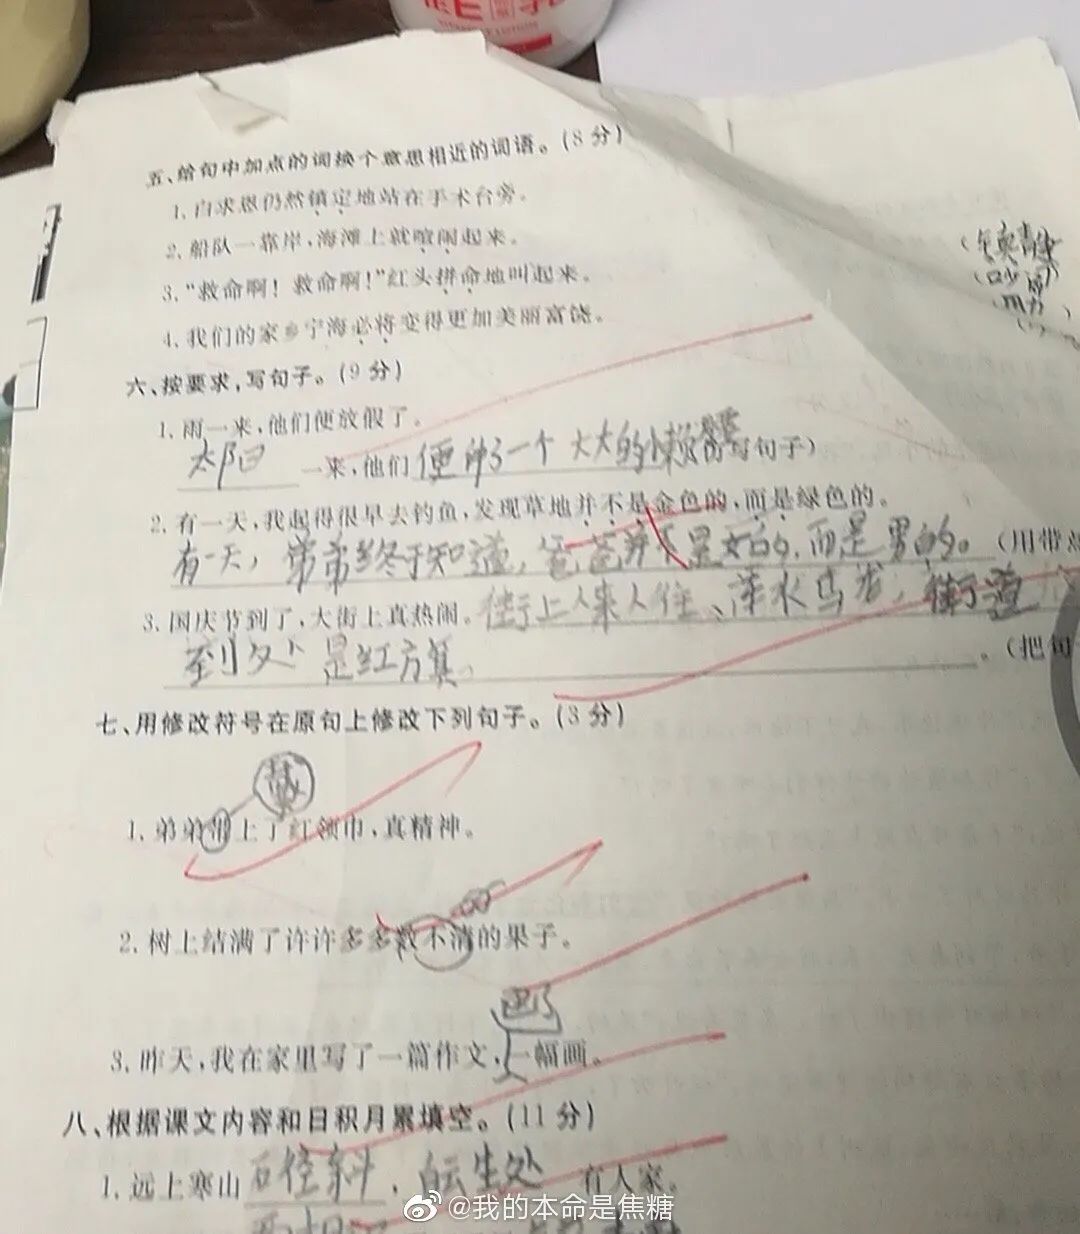 五、给句中加点的词换个意思相近的词语。(8分)
1. 白求恩仍然镇定地站在手术台旁。
2. 船队一靠岸,海滩上就喧闹起来。
3. “救命啊!救命啊!”红头拼命地叫起来。
4. 我们的家乡宁海必将变得更加美丽富饶。
六、按要求,写句子。(9分)
1. 雨一来,他们便放假了。
太阳 一来,他们 便伸了一个大大的懒腰 仿写句子)
2. 有一天,我起得很早去钓鱼,发现草地并不是金色的,而是绿色的。
有一天,弟弟终于知道,爸爸并不是女的,而是男的。(用带点
3. 国庆节到了,大街上真热闹。街上人来人往、车水马龙,街道
到处 是红方 。(把句
七、用修改符号在原句上修改下列句子。(3分)
戴
1. 弟弟带上了红领巾,真精神。
2. 树上结满了许许多多数不清的果子。
画了
3. 昨天,我在家里写了一篇作文,一幅画。
八、根据课文内容和日积月累填空。(11分)
1. 远上寒山 石径斜,白云生处 有人家。
@我的本命是焦糖